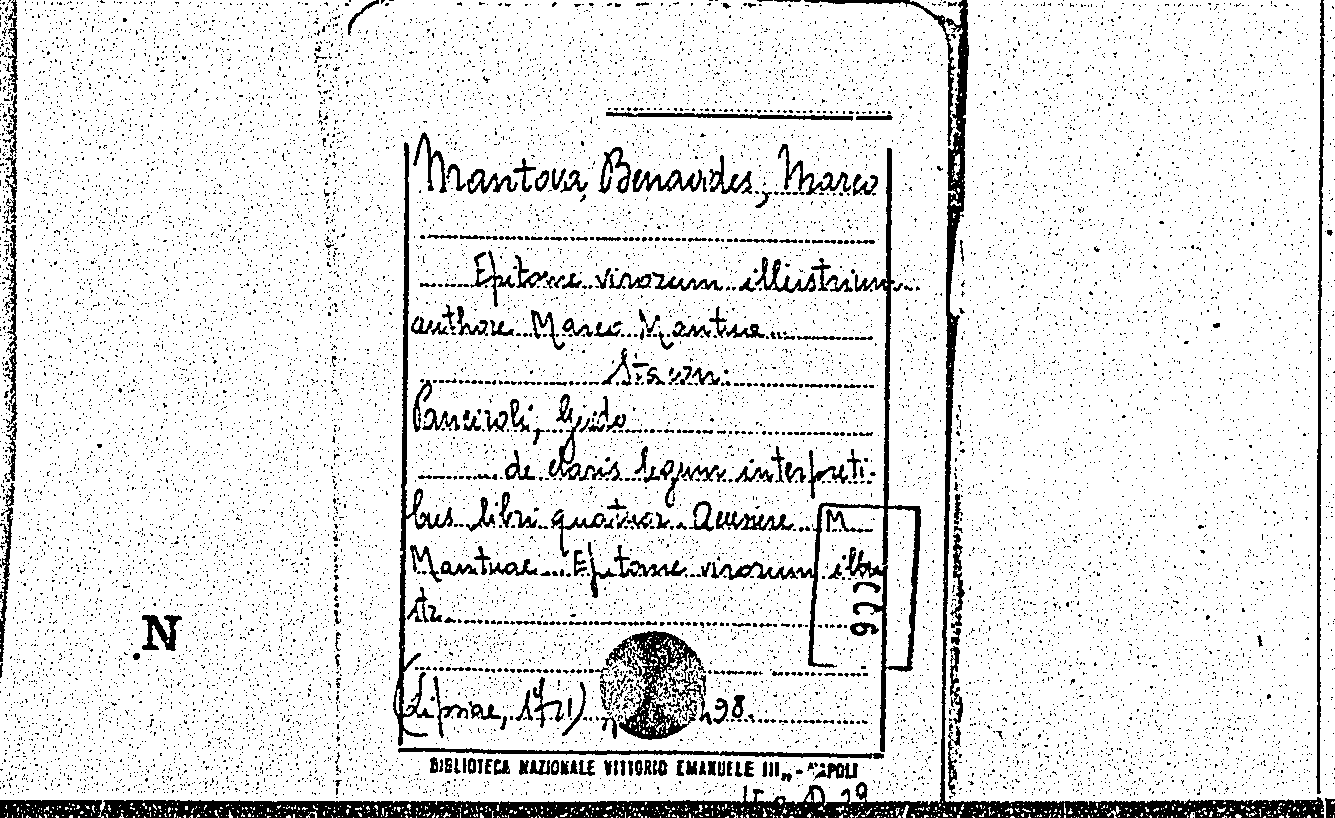 Mantova Benavides, Marco
Epitome virorum illustrium
authore Marco Mantua
Sta con:
Panciroli, Guido
de claris legum interpreti-
bus libri quatuor. M.
Mantuae Epitome virorum illu
str.
(Lipsiae, 1721) 98.
BIBLIOTECA NAZIONALE VITTORIO EMANUELE III„ - NAPOLI
N